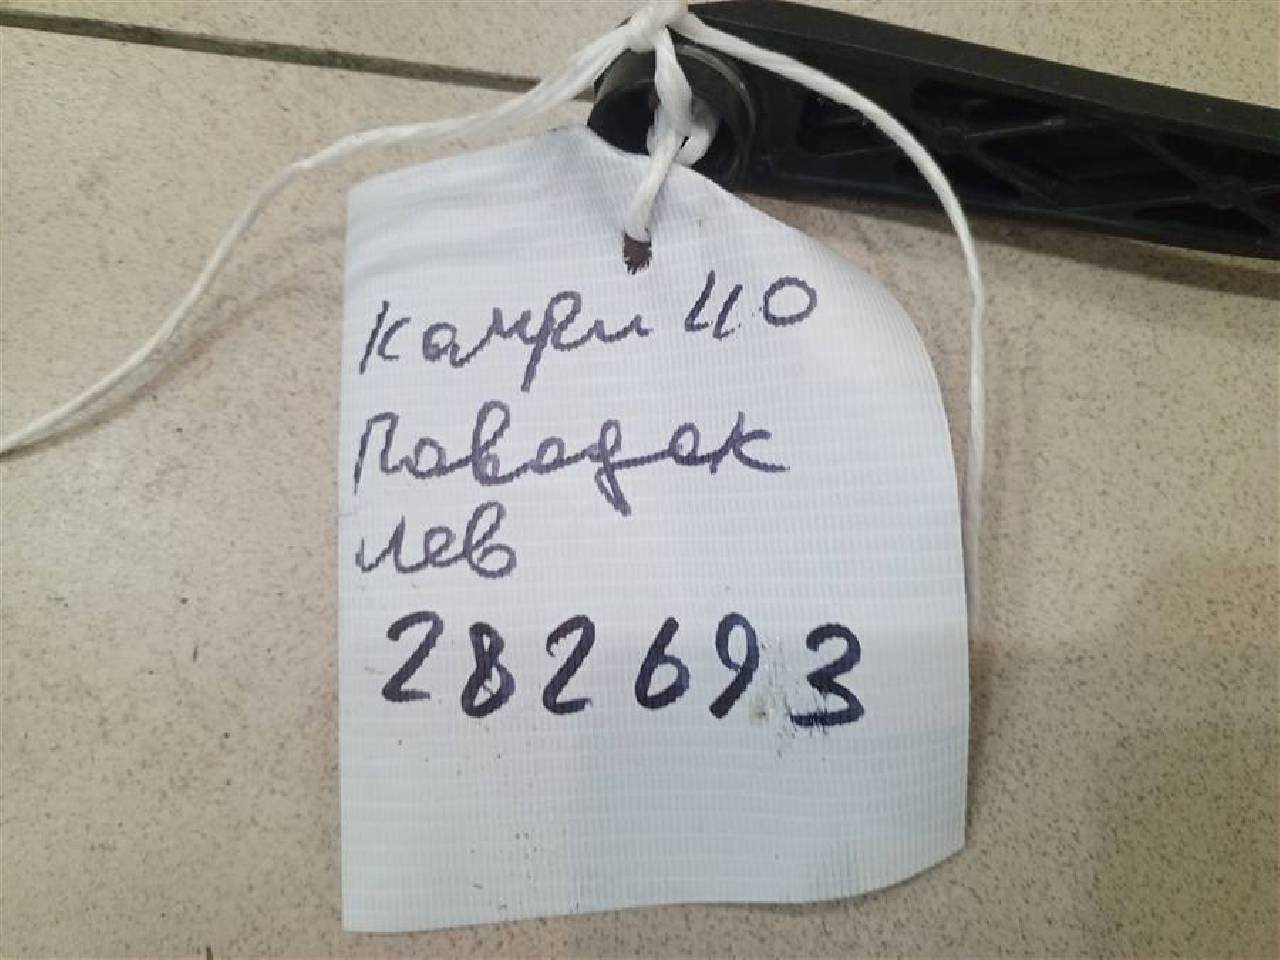 Камри 40
Павадок
лев
282693